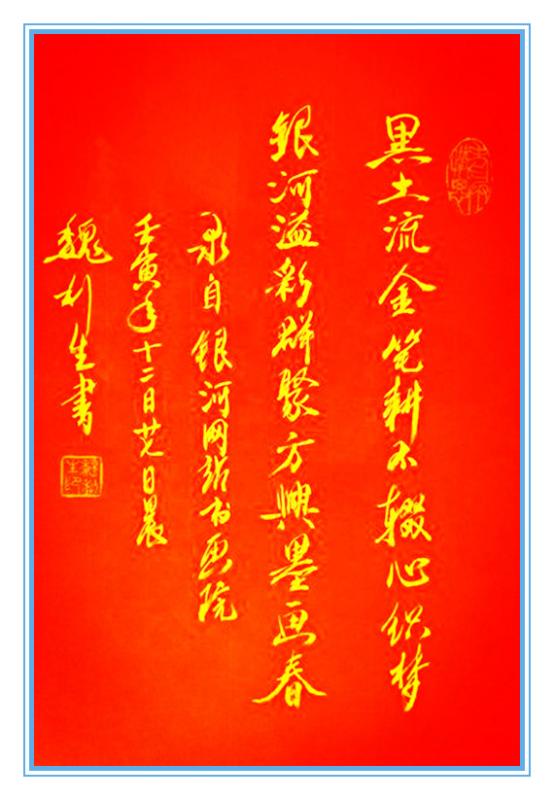 黑土流金笔耕不辍心织梦
银河溢彩群聚方興墨画春
录自银河网站书画院
壬寅年十二月廿九日晨
魏利生書